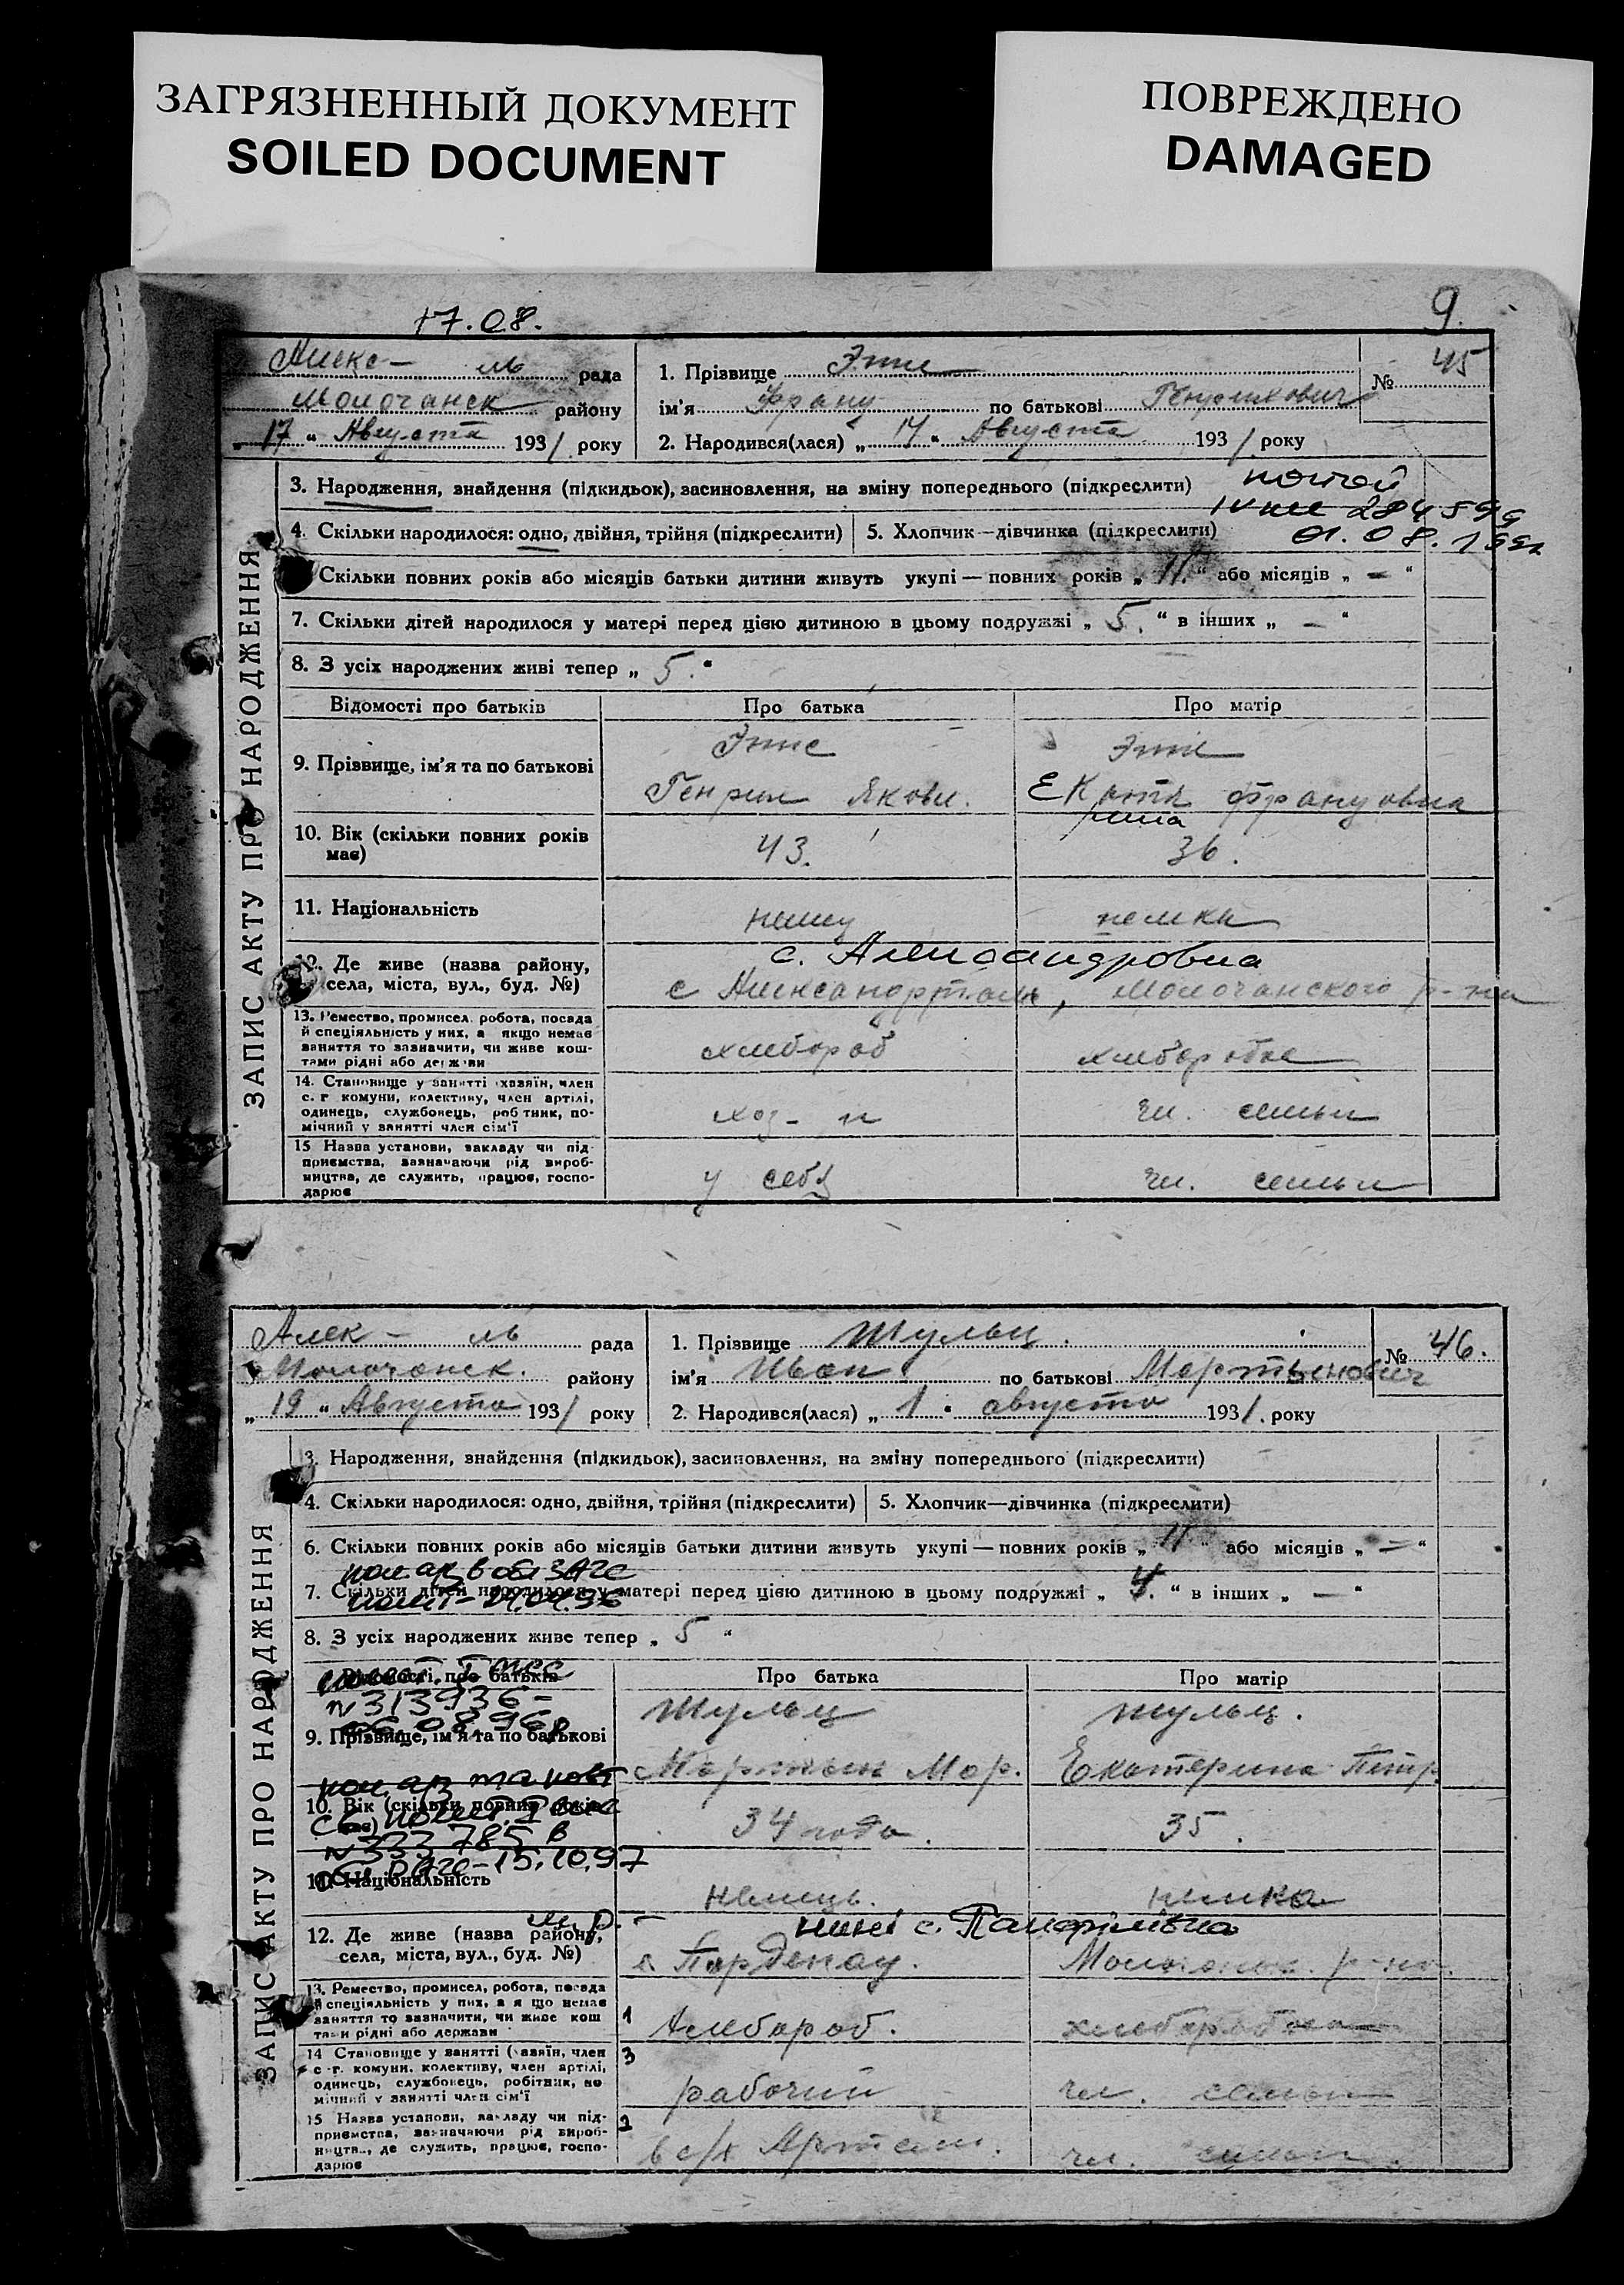 ЗАГРЯЗНЕННЫЙ ДОКУМЕНТ
SOILED DOCUMENT
ПОВРЕЖДЕНО
DAMAGED
17.08.
9.
ЗАПИС АКТУ ПРО НАРОДЖЕННЯ
Алекс- ль рада
Молочанск району
17 " Августа 1931 року
1. Прізвище
№ 45
ім'я Франц по батькові Генрихович
2. Народився(лася) „ 14 " Августа 1931 року
3. Народження, знайдення (підкидьок), засиновлення, на зміну попереднього (підкреслити)
284599
01.08.
4. Скільки народилося: одно, двійня, трійня (підкреслити) 5. Хлопчик—дівчинка (підкреслити)
Скільки повних років або місяців батьки дитини живуть укупі — повних років „ 11. " або місяців „ — "
7. Скільки дітей народилося у матері перед цією дитиною в цьому подружжі „ 5. " в інших „ — "
8. З усіх народжених живі тепер „ 5. "
Відомості про батьків Про батька Про матір
9. Прізвище, ім'я та по батькові
Генрих Яковл. Екатерина Францовна
10. Вік (скільки повних років має) 43. 36.
11. Національність немец немка
с. Александровка
12. Де живе (назва району, села, міста, вул., буд. №)
с Александрталь, Молочанского р-на
13. Ремество, промисел, робота, посада
й спеціяльність у них, а якщо немає
заняття то зазначити, чи живе кош-
тами рідні або держави
хлебороб хлеборобка
14. Становище у занятті хазяїн, член
с. г комуни, колективу, член артілі,
одинець, службовець, робтник, по-
мічний у занятті член сім'ї
хоз-н чл. семьи
15 Назва установи, закладу чи під-
приємства, зазначаючи рід вироб-
ництва, де служить, працює, госпо-
дарює
у себя чл. семьи
ЗАПИС АКТУ ПРО НАРОДЖЕННЯ
Алек- ль рада
Молочанск. району
„ 19 " Августа 1931 року
1. Прізвище Шульц.
№ 46.
ім'я Иван по батькові Мартынович
2. Народився(лася) „ 1 " августа 1931. року
3. Народження, знайдення (підкидьок), засиновлення, на зміну попереднього (підкреслити)
4. Скільки народилося: одно, двійня, трійня (підкреслити) 5. Хлопчик—дівчинка (підкреслити)
6. Скільки повних років або місяців батьки дитини живуть укупі — повних років „ 11 " або місяців „ — "
7. Скільки дітей народилося у матері перед цією дитиною в цьому подружжі „ 4. " в інших „ — "
8. З усіх народжених живе тепер „ 5 "
Відомості про батьків Про батька Про матір
N 313936-
06.08.96р.
9. Прізвище, ім'я та по батькові
Шульц Шульц.
Мартын Мар. Екатерина Петр.
10. Вік (скільки повних років має) 34 года. 35.
N 333785 в
15.10.97
11. Національність немець. немка
нині с. Панфілівка
12. Де живе (назва району, села, міста, вул., буд. №)
с. Парденау. Молочанск. р-на.
13. Ремество, промисел, робота, посада
й спеціяльність у них, а я що немає
заняття то зазначити, чи живе кош
тами рідні або держави
1 хлебороб. хлеборобка
14 Становище у занятті (хазяїн, член
с-г. комуни, колективу, член артілі,
одинець, службовець, робітник, по
мічний у занятті член сім'ї
3 рабочий чл. семьи
15 Назва установи, закладу чи під-
приємства, зазначаючи рід вироб-
ництва, де служить, працює, госпо-
дарює
2 в с/х Артели. чл. семьи.